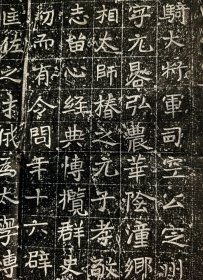 騎大將軍司空公定州
字元晷弘農華陰潼鄉
相太師椿之元子孝敬
志留心經典博攬群史
而有令問年十六辟
匡佐之才俄爲太學博